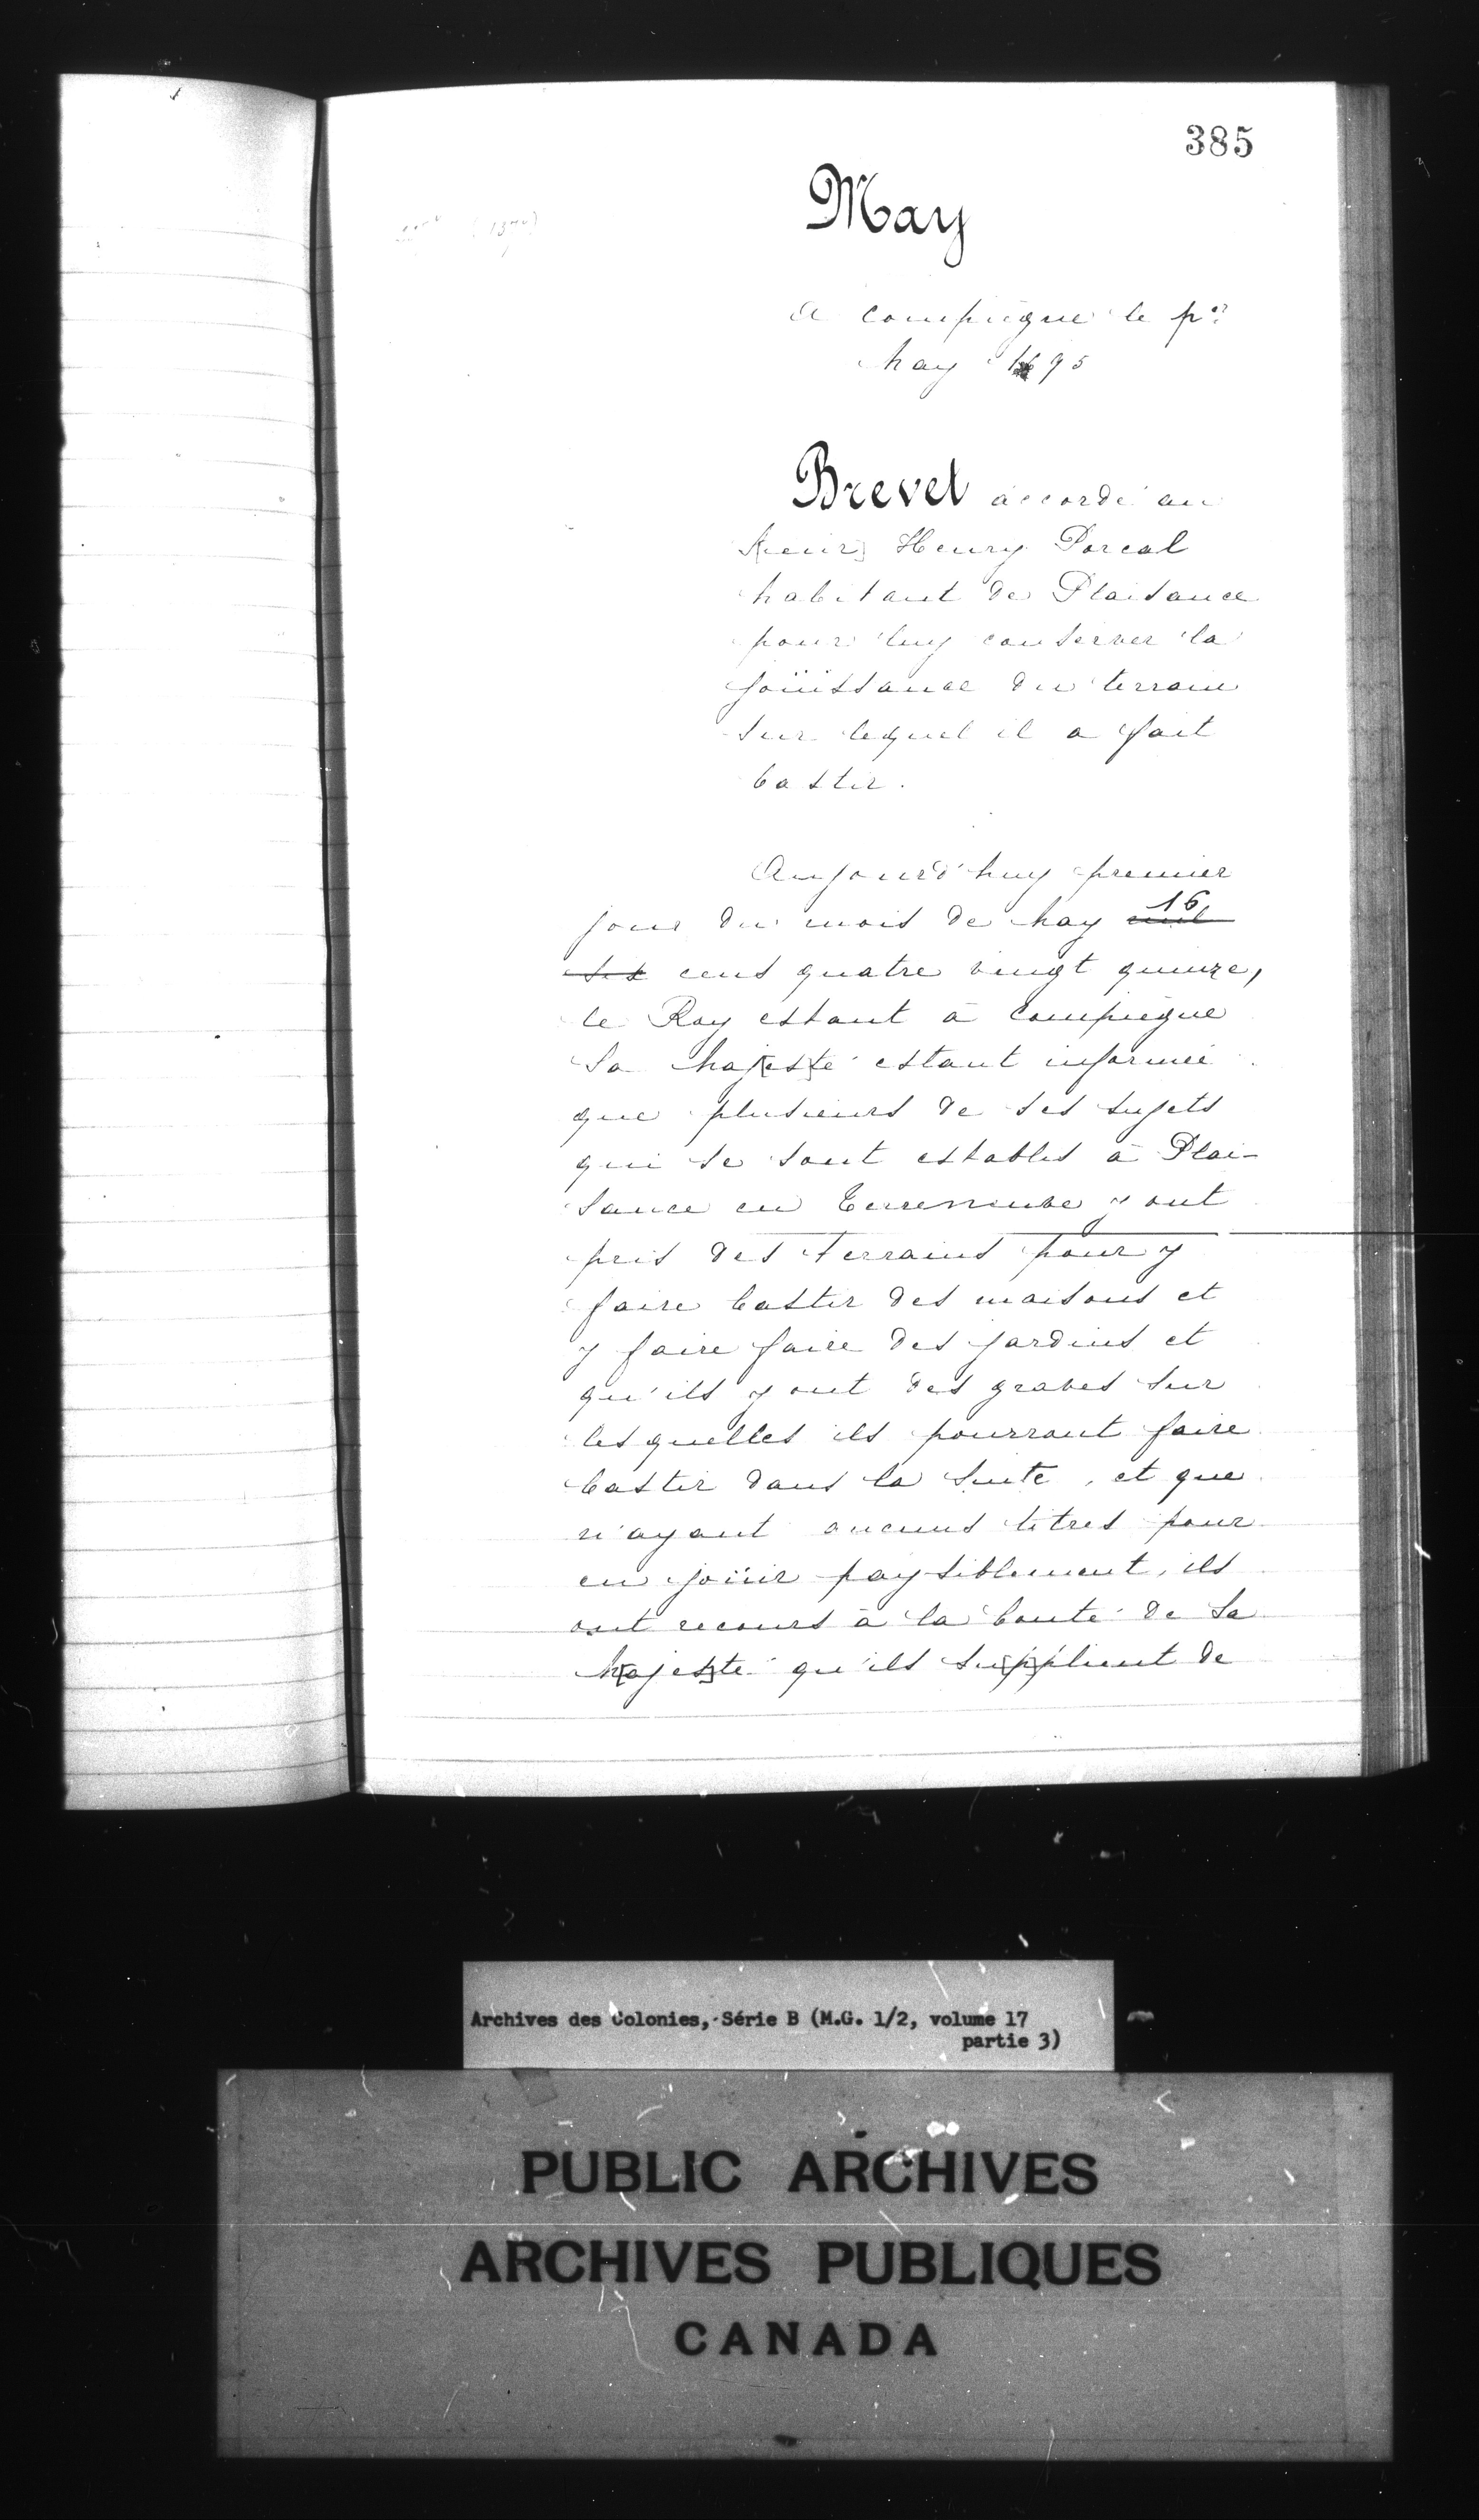 385
May
A Compiègne le p.er
May 1695
Brevet accordé au
S[ieur] Henry Porcal
habitant de Plaisance
pour luy conserver la
joüissance du terrain
sur lequel il a fait
bastir.
Aujourd'huy premier
jour du mois de May 16
cens quatre vingt quinze,
le Roy estant à Compiègne
Sa Maj[es]té estant informée
que plusieurs de ses sujets
qui se sont establis à Plai-
sance en Terreneuve y ont
pris des terrains pour y
faire bastir des maisons et
y faire faire des jardins et
qu'ils y ont des graves sur
lesquelles ils pourront faire
bastir dans la suite, et que
n'ayant aucuns titres pour
en joüir paysiblement, ils
ont recours à la bonté de Sa
M[ajes]té qu'ils su[pp]lient de
Archives des Colonies, Série B (M.G. 1/2, volume 17
partie 3)
PUBLIC ARCHIVES
ARCHIVES PUBLIQUES
CANADA